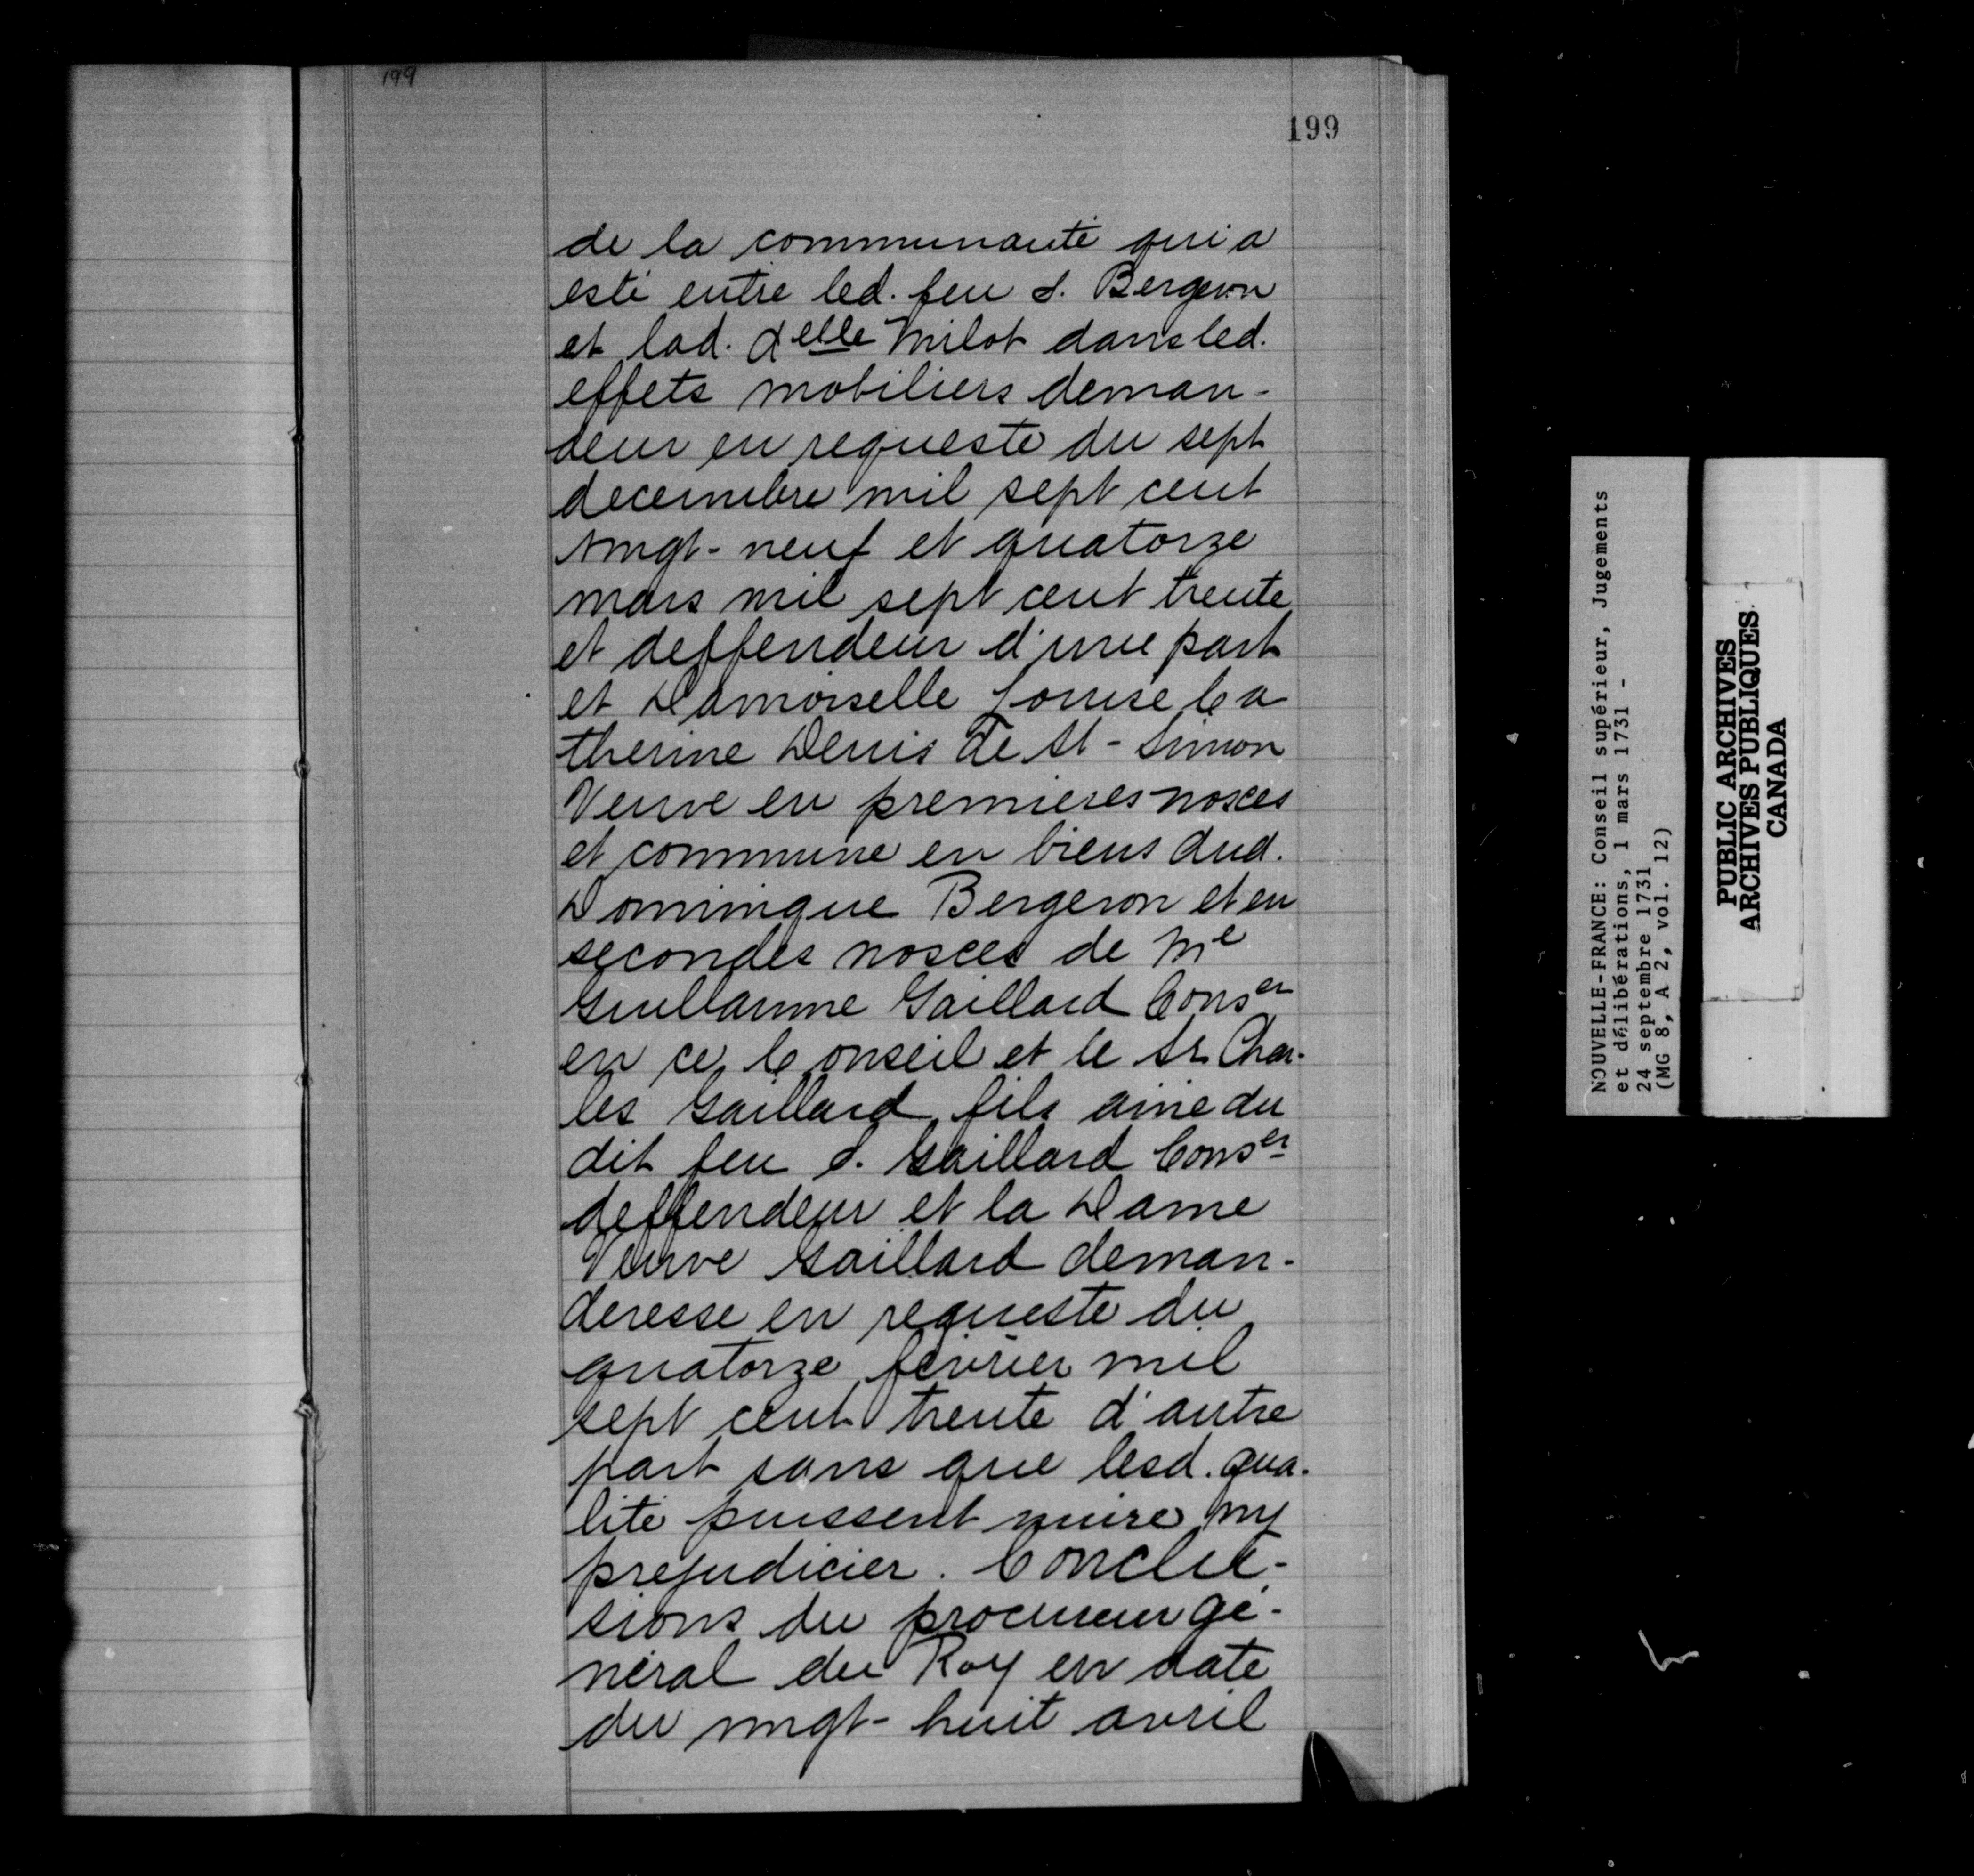 199
199
de la communauté qui a
esté entre led. feu s. Bergeron
et lad. delle Milot dans led.
effets mobiliers deman-
deur en requeste du sept
decembre mil sept cent
vingt-neuf et quatorze
mars mil sept cent trente
et deffendeur d'une part
et Damoiselle Louise Ca
therine Denis de St-Simon
Veuve en premieres nosces
et commune en biens dud.
Dominique Bergeron et en
secondes nosces de Me
Guillaume Gaillard Conser
en ce Conseil et le Sr Char-
les Gaillard fils ainé du
dit feu S. Gaillard Conser
deffendeur et la Dame
Veuve Gaillard deman-
deresse en requeste du
quatorze février mil
sept cent trente d'autre
part sans que lesd. qua-
lité puissent nuire ny
prejudicier. Conclu-
sions du procureur gé-
néral du Roy en date
du vingt-huit avril
NOUVELLE-FRANCE: Conseil supérieur, Jugements
et délibérations, 1 mars 1731 -
24 septembre 1731
(MG 8, A 2, vol. 12)
PUBLIC ARCHIVES
ARCHIVES PUBLIQUES
CANADA